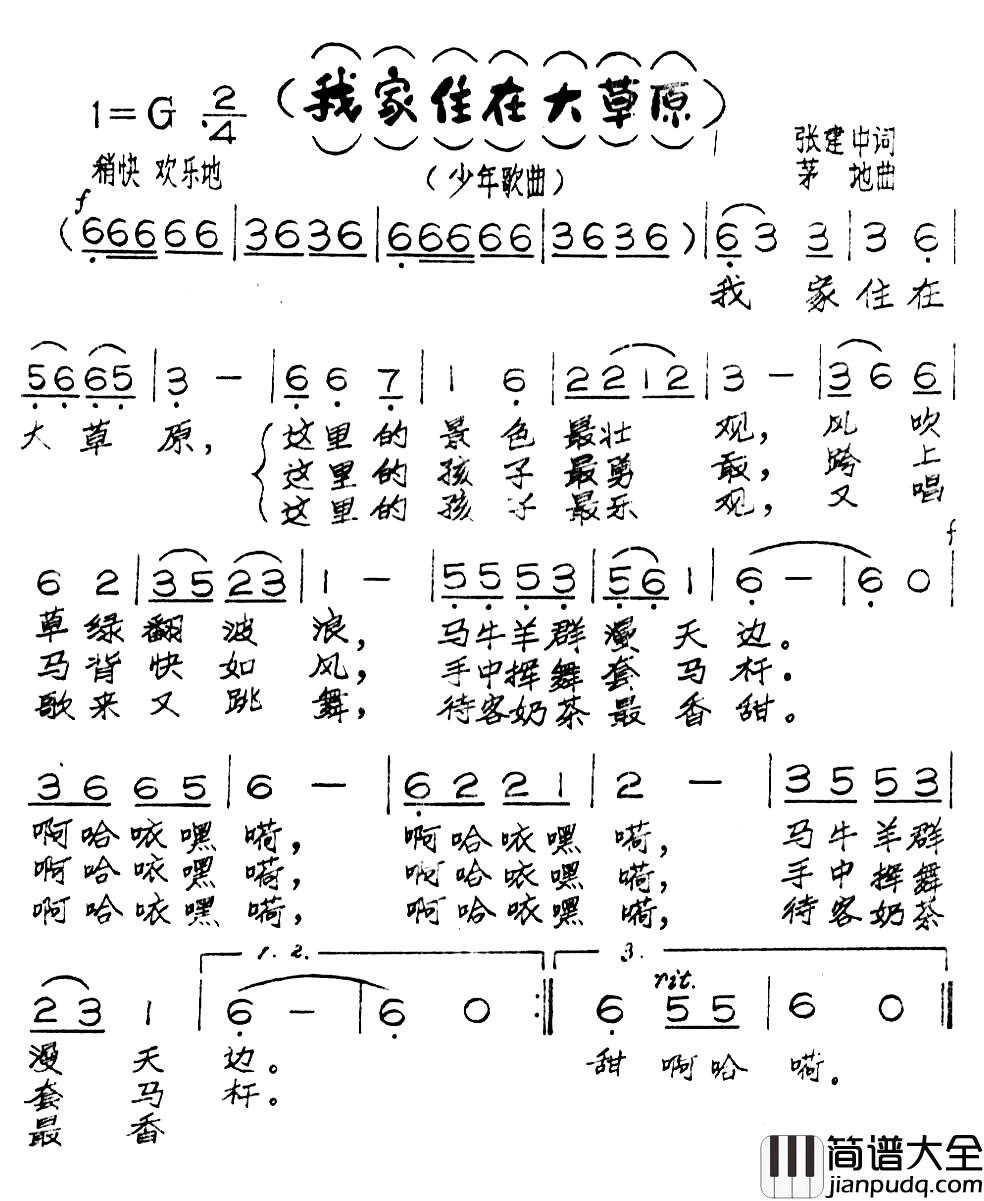 1=G 2/4 (我家住在大草原)
稍快 欢乐地 (少年歌曲)
张建中词
茅 地曲
f
(666666|3636|666666|3636)|63 3|3 6|
我 家住在
5665|3 -|66 7|1 6|2212|3 -|36 6|
大草原, 这里的景色最壮观, 风吹
这里的孩子最勇敢, 跨上
这里的孩子最乐观, 又唱
f
6 2|3523|1 -|5553|561|6 -|6 0|
草绿翻波浪, 马牛羊群漫天边。
马背快如风, 手中挥舞套马杆。
歌来又跳舞, 待客奶茶最香甜。
36 65|6 -|62 21|2 -|35 53|
啊哈咴嘿嗬, 啊哈咴嘿嗬, 马牛羊群
啊哈咴嘿嗬, 啊哈咴嘿嗬, 手中挥舞
啊哈咴嘿嗬, 啊哈咴嘿嗬, 待客奶茶
1.2. 3.
rit.
23 1|6 -|6 0:‖6 55|6 0‖
漫天边。 甜啊哈嗬。
套马杆。
最香
简谱大全
jianpudq.com